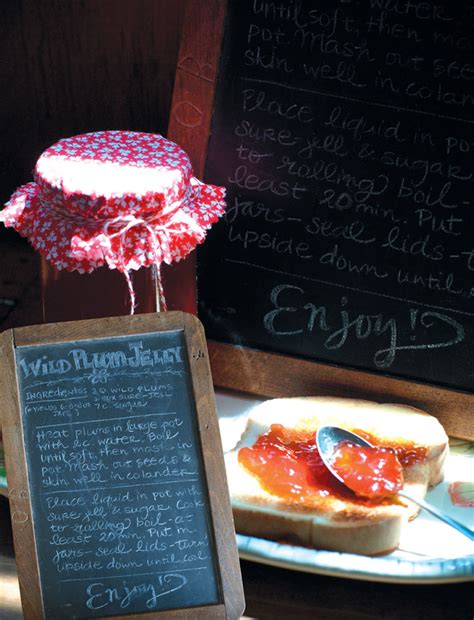 until soft, then mom
pot. Mash out see
skin well in
colander
Place liquid in pot
sure jell & sugar
to rolling) boil
least 20 min. Put
jars - seal lids - t
upside down until
Enjoy!
WILD PLUM JELLY
INGREDIENTS: 20 WILD PLUMS
7C. SUGAR
Heat plums in large pot
with 1c. water. Boil
until soft, then mom
pot. Mash out seeds &
skin well in
colander
Place liquid in pot with
sure jell & sugar. Cook
to rolling) boil - at
least 20 min. Put in
jars - seal lids - turn
upside down until cool
Enjoy!